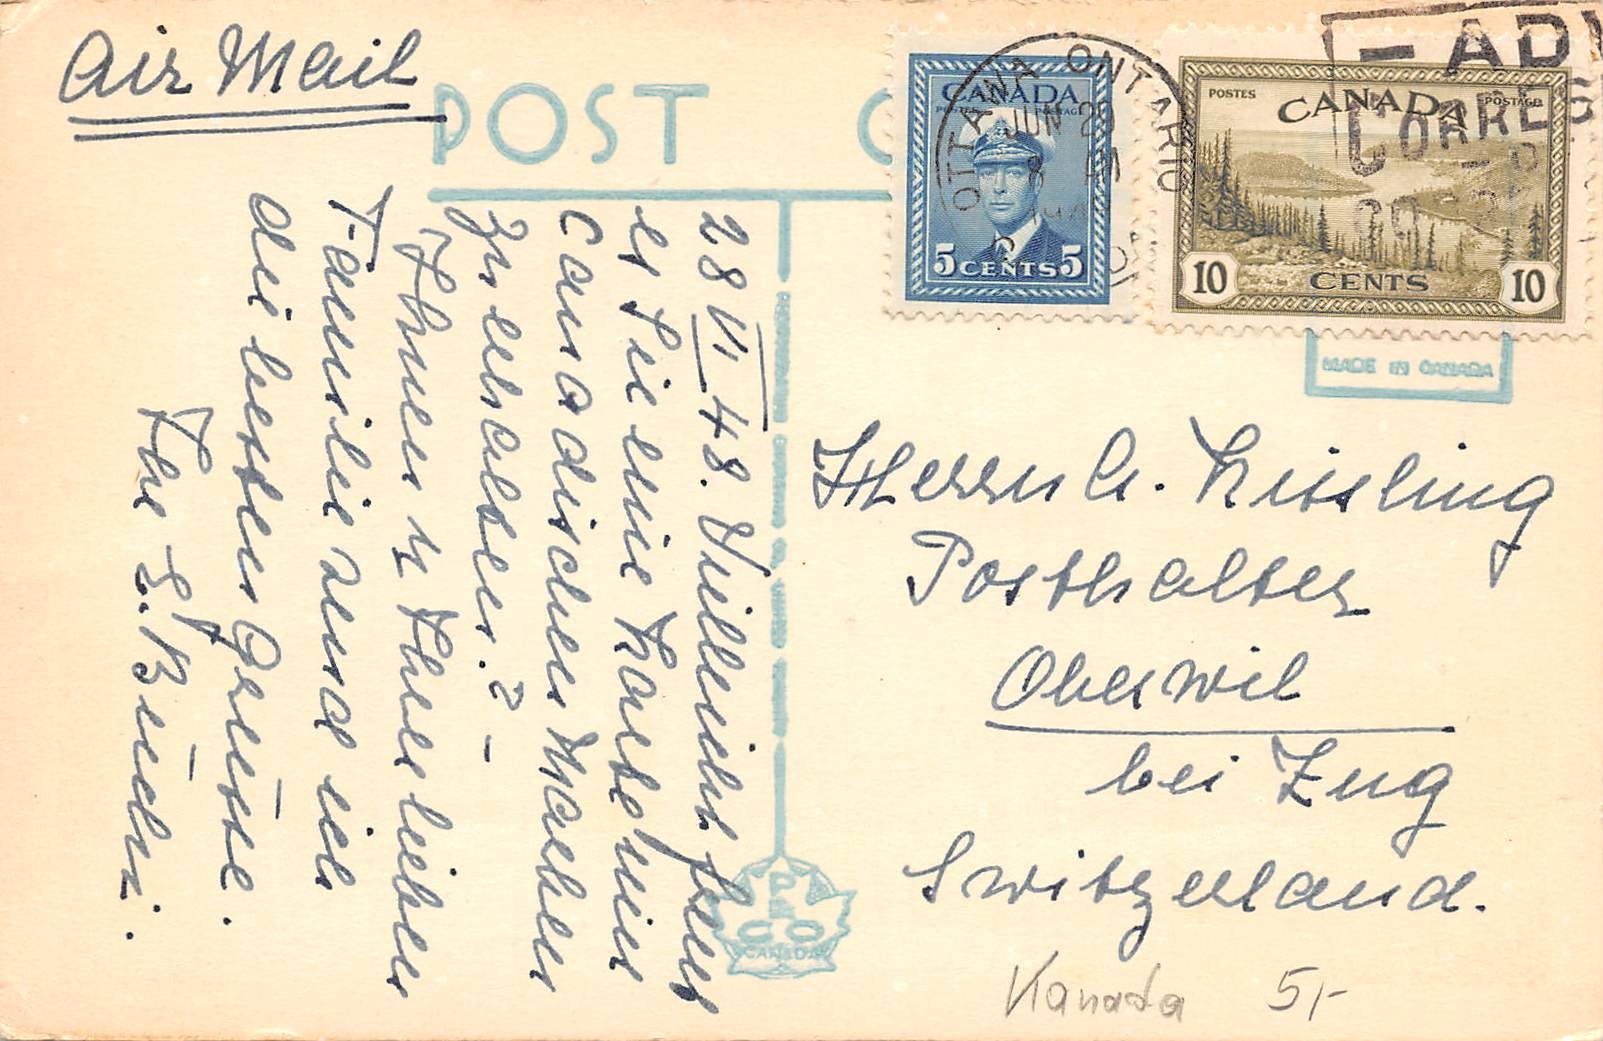 Air Mail
POST C
OTTAWA ONTARIO
JUN 29
8 PM
CANADA
POSTES POSTAGE
5 CENTS 5
POSTES CANADA POSTAGE
10 CENTS 10
AD
CORRES
MADE IN CANADA
28 VI 48. Vielleicht freut
es Sie eine Karte mit
Canadischen Marken
zu erhalten? –
Ihnen u Ihrer lieben
Familie sende ich
die besten Grüsse.
Ihr
Herrn A. Kissling
Posthalter
Oberwil
bei Zug
Switzerland.
PECO
CANADA
Kanada 5,-